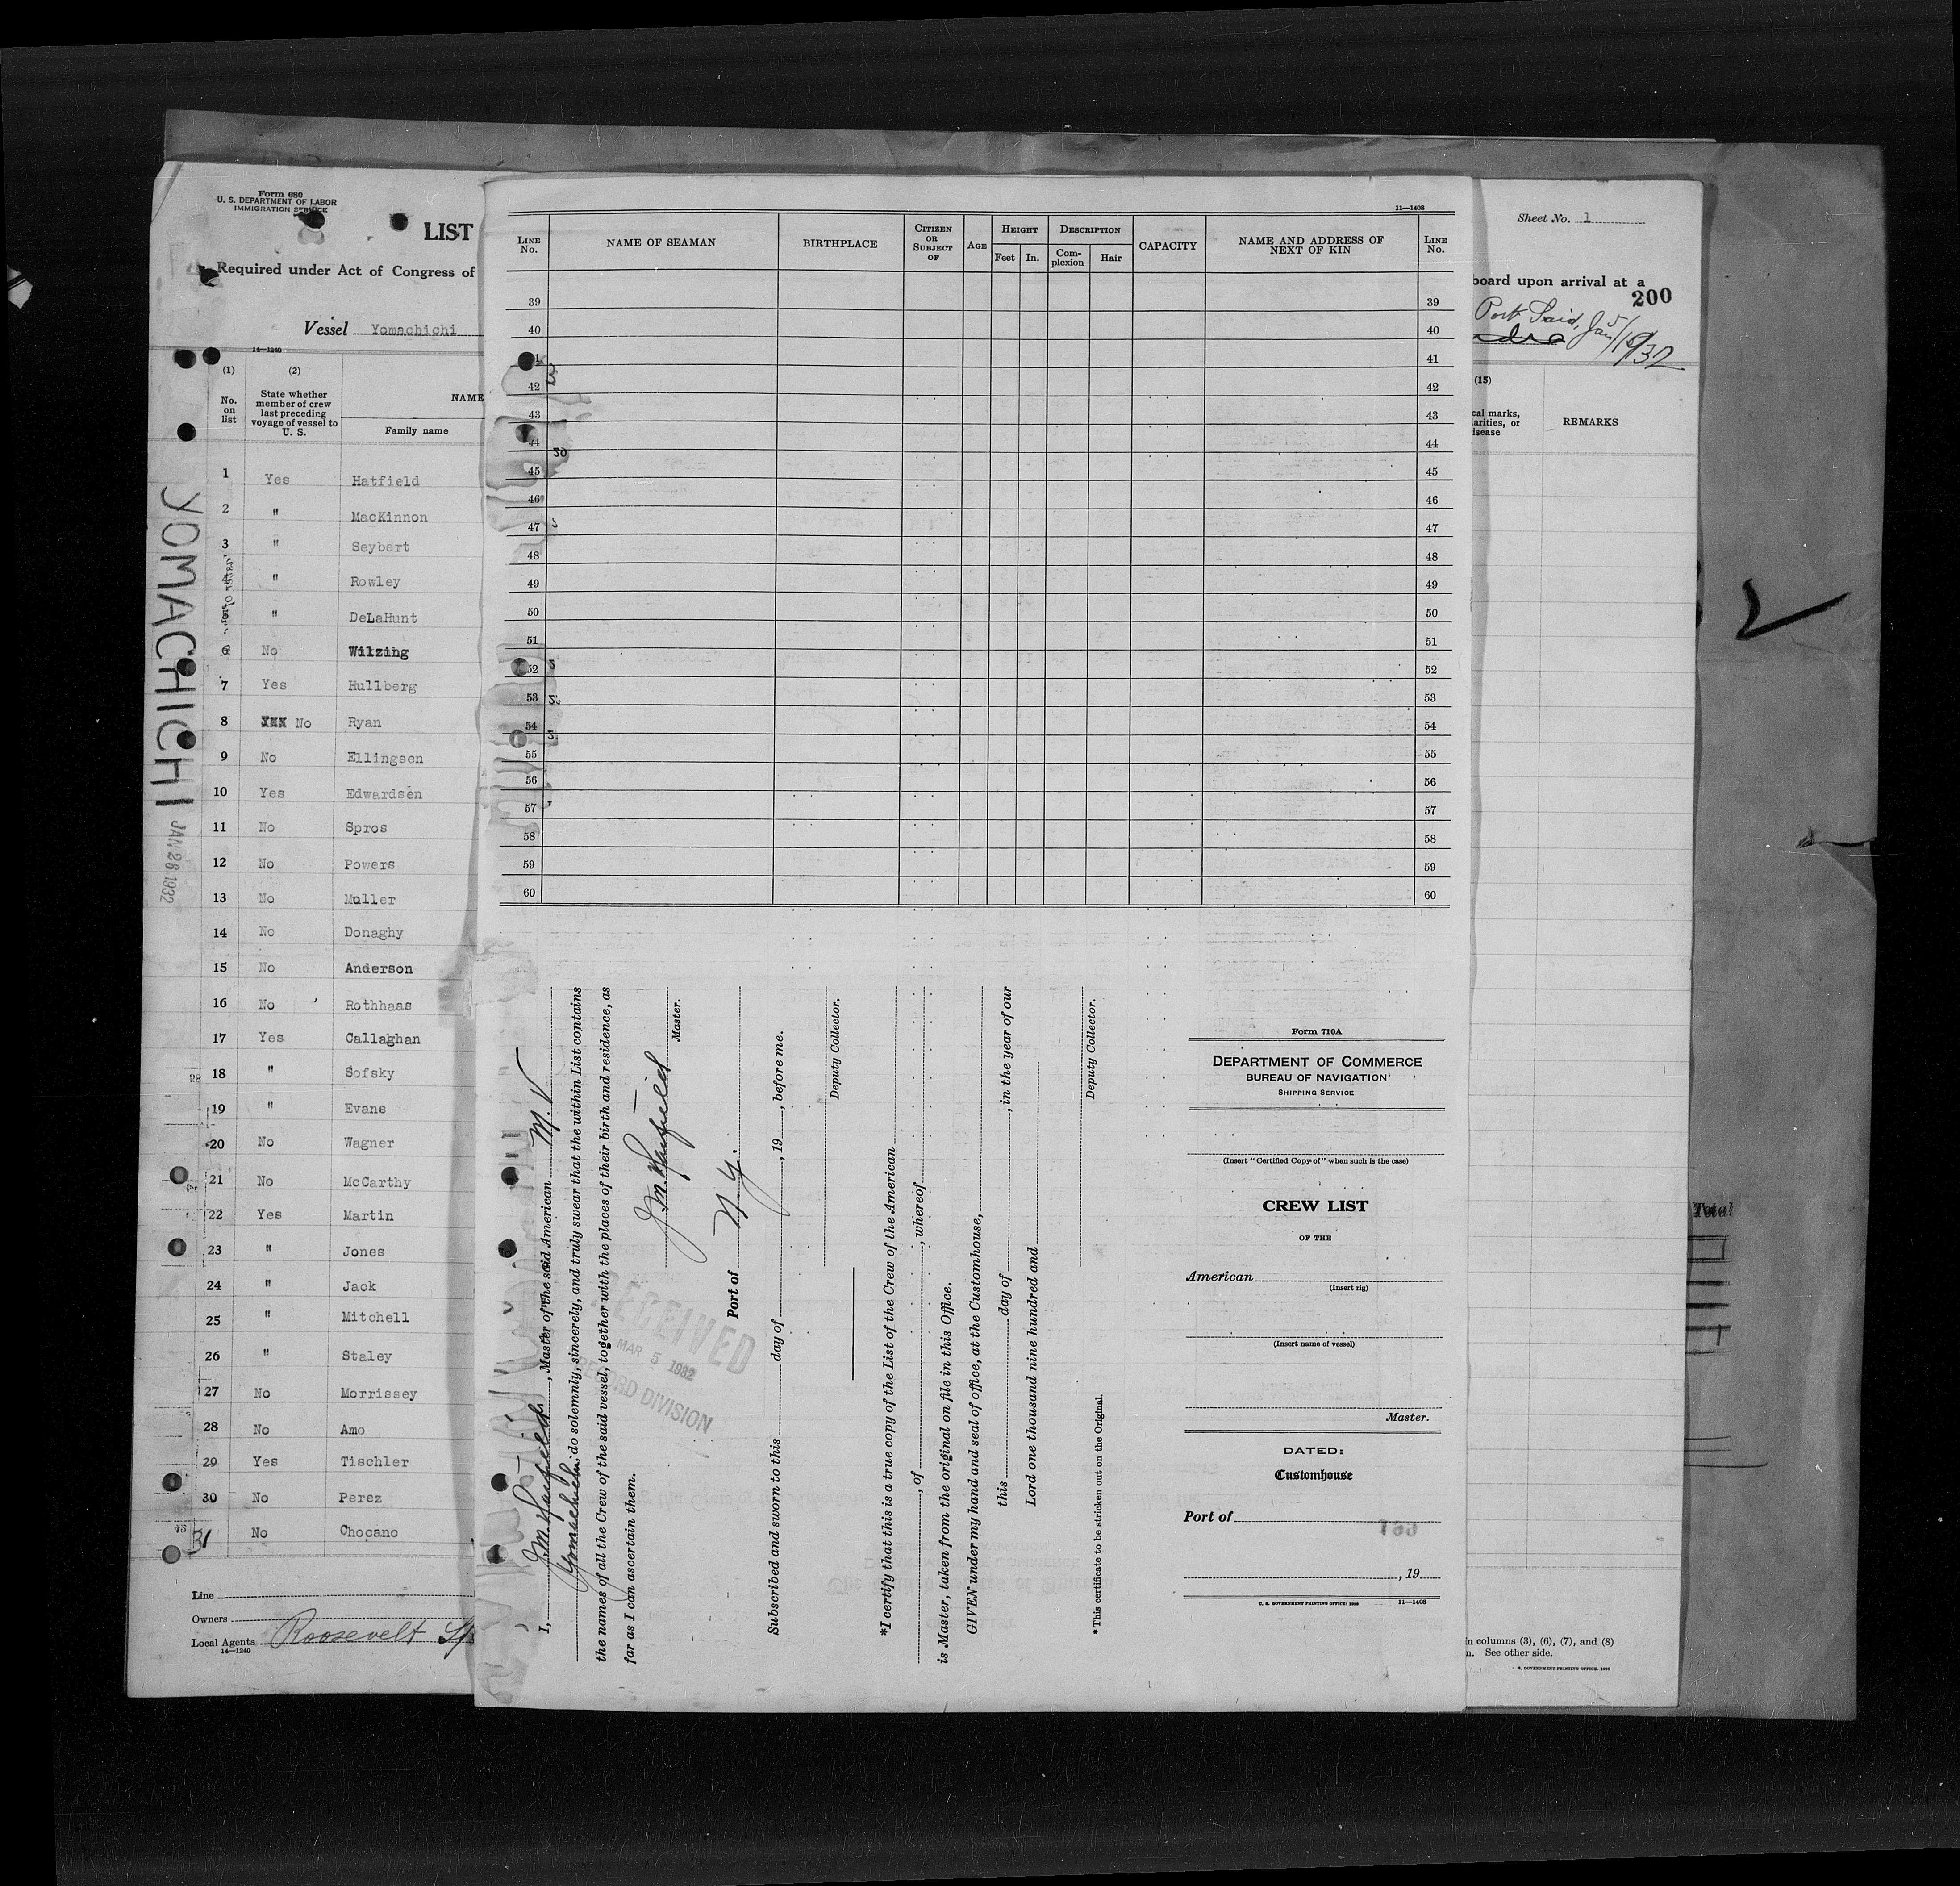 Form 680
U. S. DEPARTMENT OF LABOR
IMMIGRATION SERVICE
LIST
Required under Act of Congress of
Vessel Yomachichi
14—1240
(1) (2)
No. on list
State whether member of crew last preceding voyage of vessel to U. S.
NAME
Family name
1 Yes Hatfield
2 " MacKinnon
3 " Seybert
" Rowley
" DeLaHunt
6 No Wilzing
7 Yes Hullberg
8 XXX No Ryan
9 No Ellingsen
10 Yes Edwardsen
11 No Spros
12 No Powers
13 No Muller
14 No Donaghy
15 No Anderson
16 No Rothhaas
17 Yes Callaghan
18 " Sofsky
19 " Evans
20 No Wagner
21 No McCarthy
22 Yes Martin
23 " Jones
24 " Jack
25 " Mitchell
26 " Staley
27 No Morrissey
28 No Amo
29 Yes Tischler
30 No Perez
31 No Chocano
Line
Owners
Local Agents Roosevelt
14—1240
YOMACHICHI
JAN 28 1932
11—1408
LINE No.
NAME OF SEAMAN
BIRTHPLACE
CITIZEN OR SUBJECT OF
AGE
HEIGHT
Feet In.
DESCRIPTION
Complexion Hair
CAPACITY
NAME AND ADDRESS OF NEXT OF KIN
LINE No.
39 39
40 40
41
42 42
43 43
44 44
45 45
46 46
47 47
48 48
49 49
50 50
51 51
52 52
53 53
54 54
55 55
56 56
57 57
58 58
59 59
60 60
I, J.M. Hatfield, Master of the said American M.V.
Yomachichi do solemnly, sincerely, and truly swear that the within List contains
the names of all the Crew of the said vessel, together with the places of their birth and residence, as
far as I can ascertain them.
J.M. Hatfield
Master.
Port of N.Y.
Subscribed and sworn to this day of , 19 , before me.
Deputy Collector.
*I certify that this is a true copy of the List of the Crew of the American
, of , whereof
is Master, taken from the original on file in this Office.
GIVEN under my hand and seal of office, at the Customhouse,
this day of , in the year of our
Lord one thousand nine hundred and
Deputy Collector.
*This certificate to be stricken out on the Original.
RECEIVED
MAR 5 1932
RECORD DIVISION
Form 710A
DEPARTMENT OF COMMERCE
BUREAU OF NAVIGATION
SHIPPING SERVICE
(Insert "Certified Copy of" when such is the case)
CREW LIST
OF THE
American
(Insert rig)
(Insert name of vessel)
Master.
DATED:
Customhouse
Port of
, 19
U. S. GOVERNMENT PRINTING OFFICE: 1930 11—1408
Sheet No. 1
board upon arrival at a
200
Port Said, Jan 5/1932
(15)
cal marks,
arities, or
isease
REMARKS
Total
n columns (3), (6), (7), and (8)
n. See other side.
GOVERNMENT PRINTING OFFICE